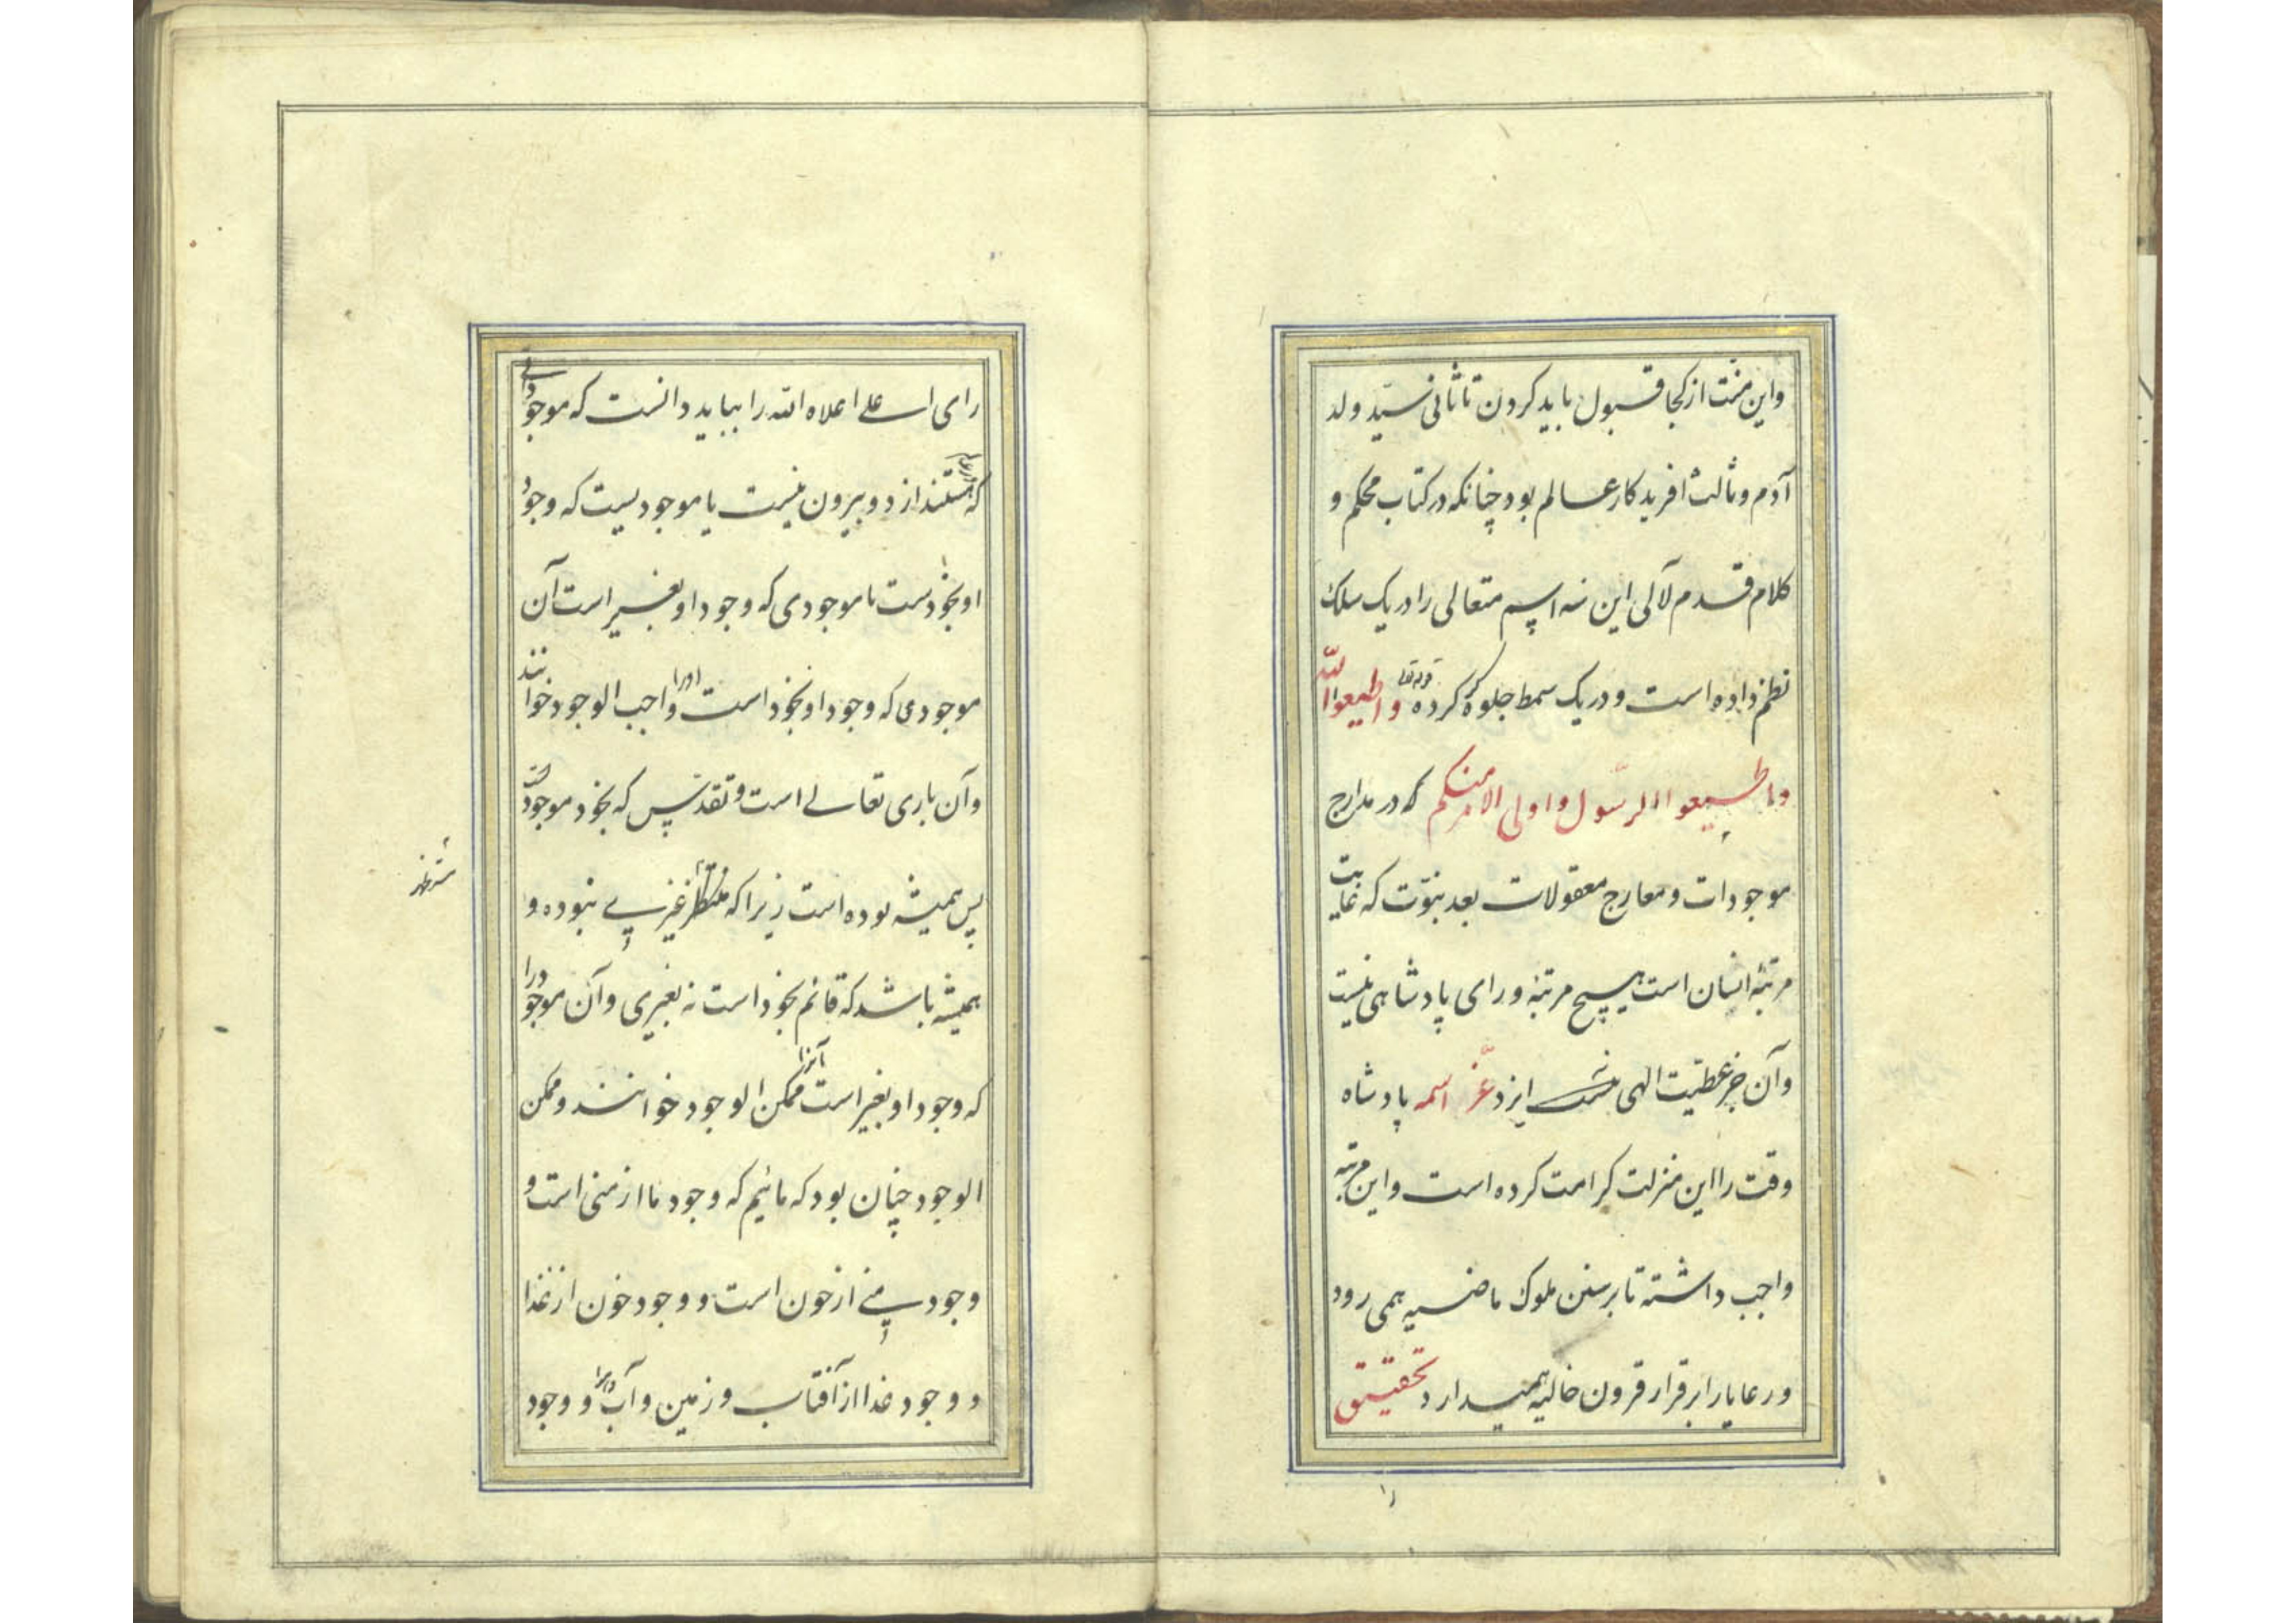 واین منت از کجا قبول باید کردن تا ثانی سیّد ولد
آدم و ثالث آفریدکار عالم بود چنانکه در کتاب محکم و
کلام قدم لآلی این سه اسم متعالی را در یک سلک
نظم داده است و در یک سمط جلوه کرده قوله تعالی و اطیعوا الله
و اطیعوا الرسّول و اولی الامر منکم که در مدارج
موجودات و معارج معقولات بعد نبوّت که غایت
مرتبهٔ انسان است هیچ مرتبهٔ ورای پادشاهی نیست
و آن جز عطیّت الهی نیست ایزد عزّ اسمه پادشاه
وقت را این منزلت کرامت کرده است و این مرتبه
واجب داشته تا بر سنن ملوک ماضیه همی رود
و رعایا را بر قرار قرون خالیه همیدارد تحقیق
رای اعلی اعلاه الله را بباید دانست که موجوداتی
که هستند از دو بیرون نیست یا موجودیست که وجود
او بخودست یا موجودی که وجود او بغیر است آن
موجودی که وجود او بخود است او را واجب الوجود خوانند
و آن باری تعالی است و تقدّس که بخود موجودست
پس همیشه بوده است زیرا که منتظر غیری نبوده و
همیشه باشد که قائم بخود است نه بغیری و آن موجود را
که وجود او بغیر است آنرا ممکن الوجود خوانند و ممکن
الوجود چنان بود که مائیم که وجود ما از منی است و
وجود منی از خون است و وجود خون از غذا
و وجود غذا از آفتاب و زمین و آب و هوا و وجود